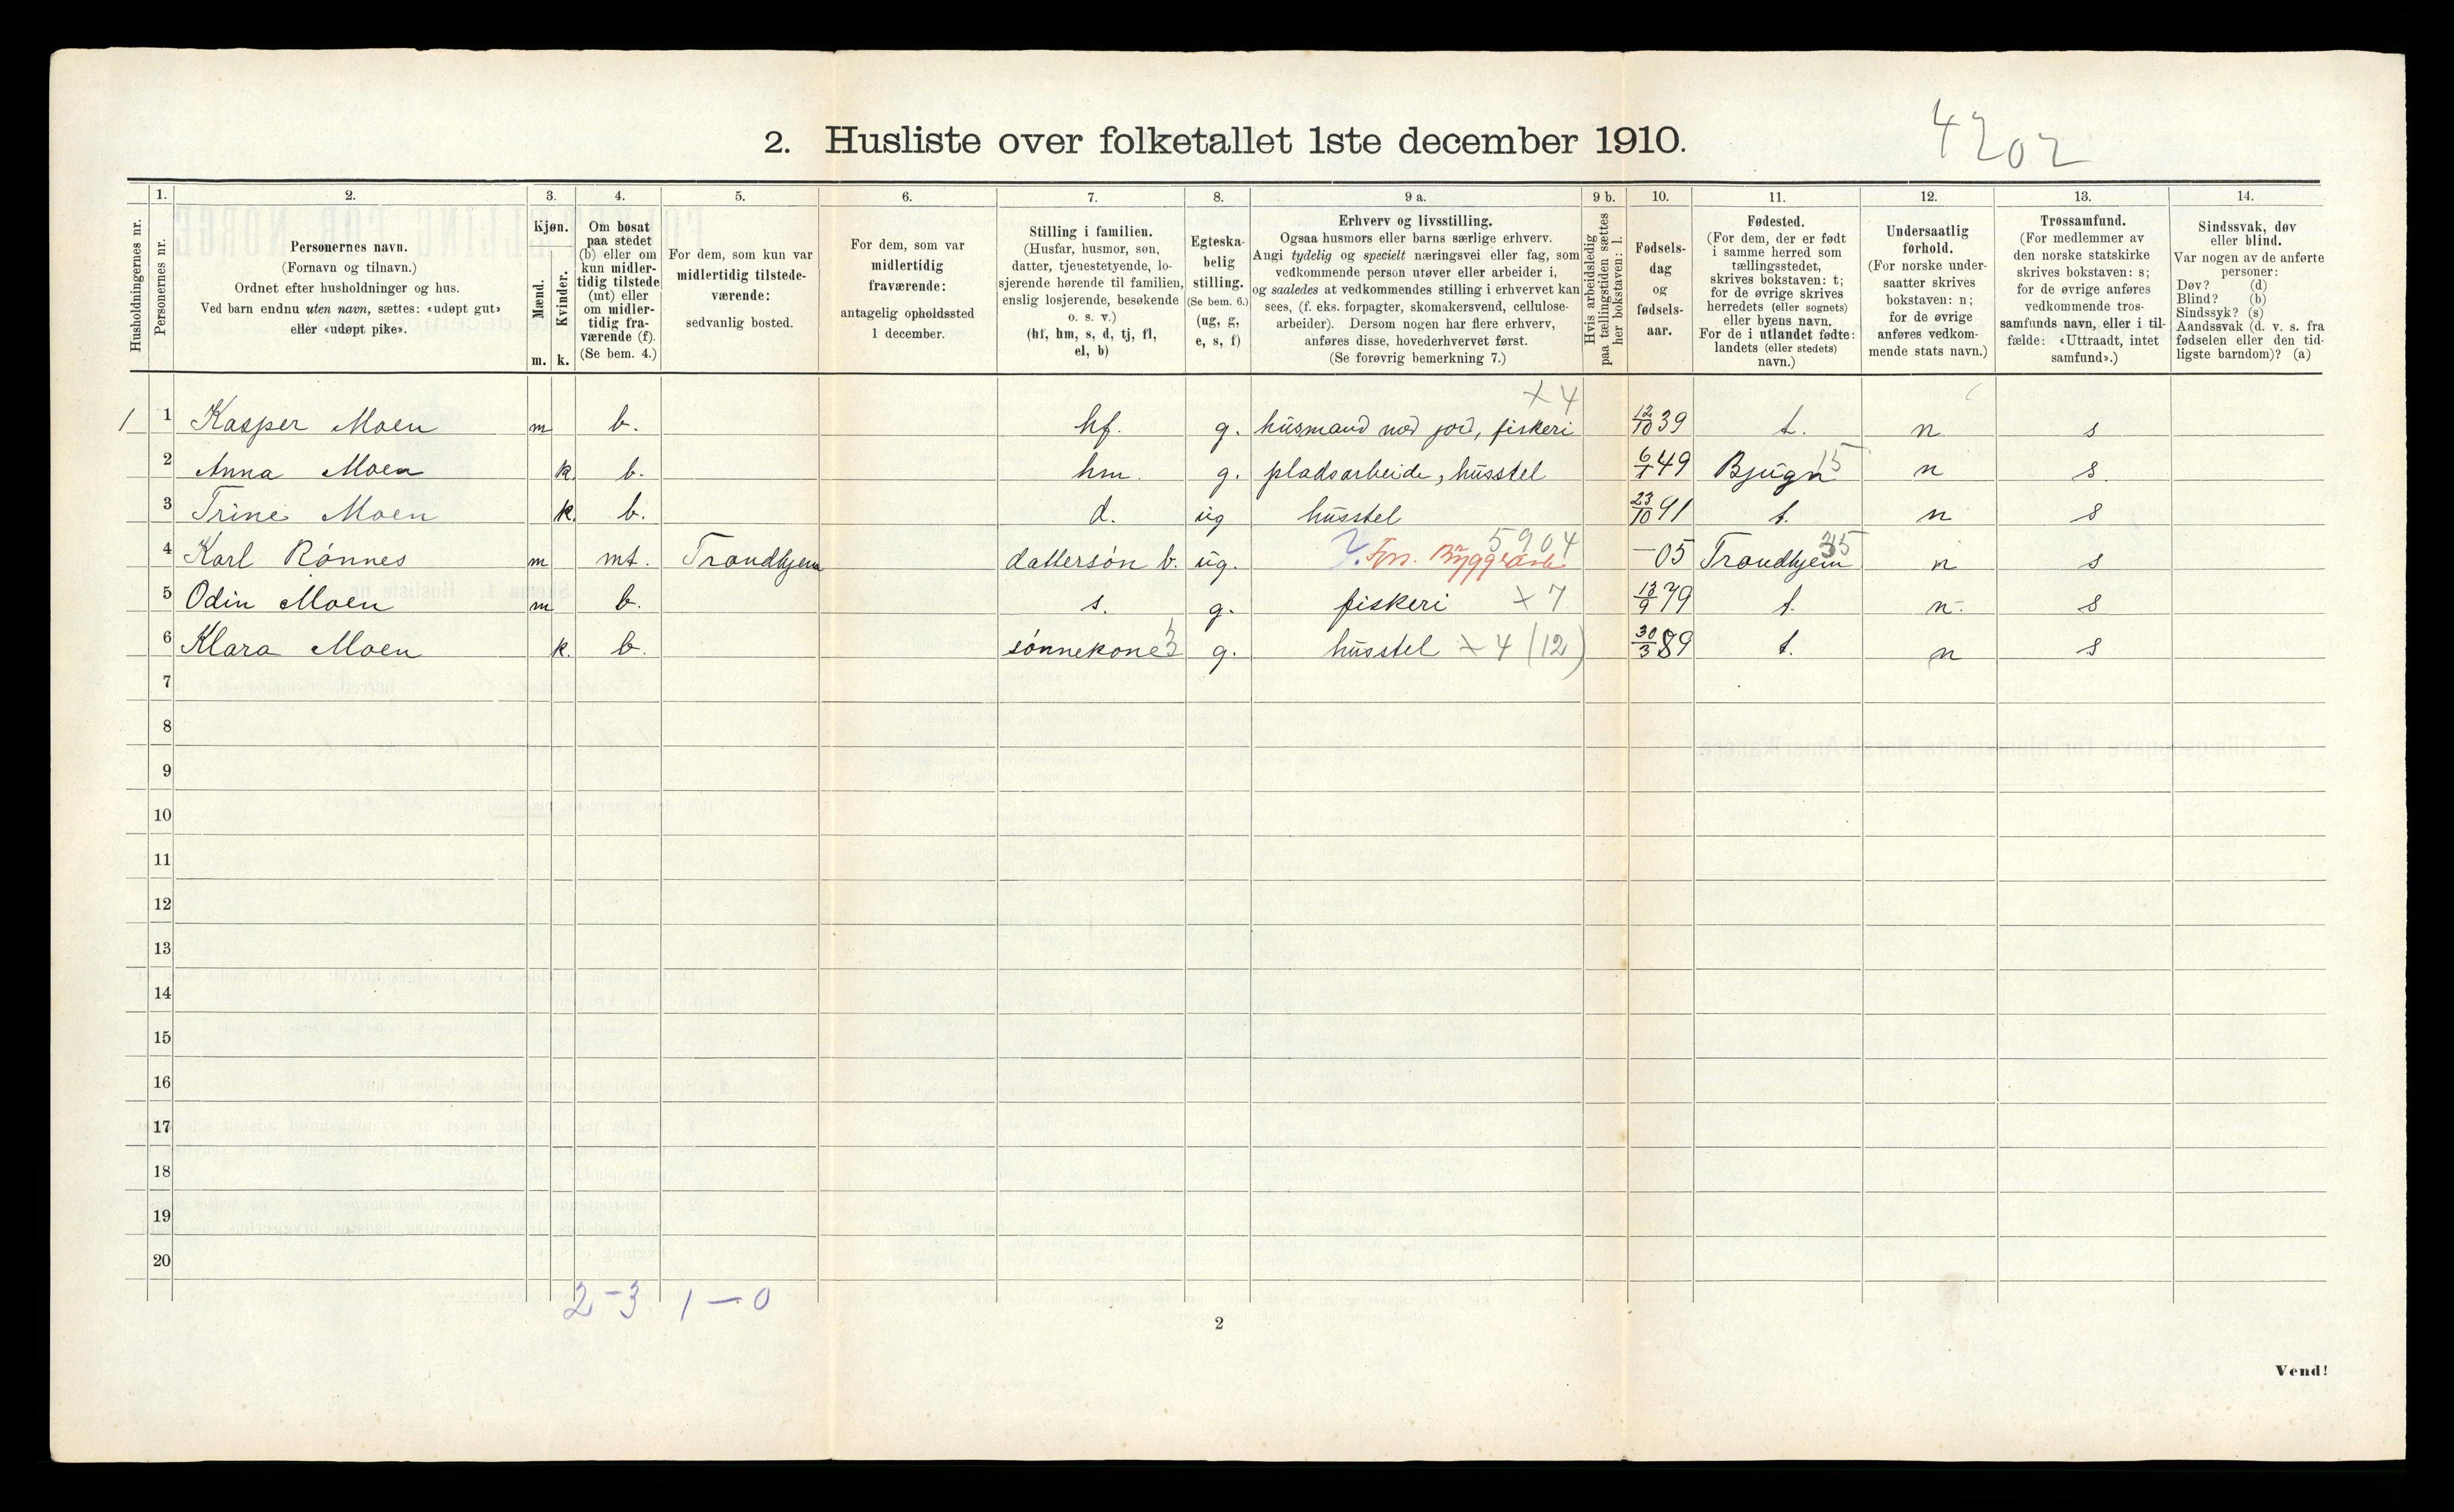 4202
2. Husliste over folketallet 1ste december 1910.
1. 2. 3. 4. 5. 6. 7. 8. 9 a. 9 b. 10. 11. 12. 13. 14.
Husholdningernes nr.
Personernes nr.
Personernes navn.
(Fornavn og tilnavn.)
Ordnet efter husholdninger og hus.
Ved barn endnu uten navn, sættes: «udøpt gut»
eller «udøpt pike».
Kjøn.
Mænd.
Kvinder.
m. k.
Om bosat
paa stedet
(b) eller om
kun midler-
tidig tilstede
(mt) eller
om midler-
tidig fra-
værende (f).
(Se bem. 4.)
For dem, som kun var
midlertidig tilstede-
værende:
sedvanlig bosted.
For dem, som var
midlertidig
fraværende:
antagelig opholdssted
1 december.
Stilling i familien.
(Husfar, husmor, søn,
datter, tjenestetyende, lo-
sjerende hørende til familien,
enslig losjerende, besøkende
o. s. v.)
(hf, hm, s, d, tj, fl,
el, b)
Egteska-
belig
stilling.
(Se bem. 6.)
(ug, g,
e, s, f)
Erhverv og livsstilling.
Ogsaa husmors eller barns særlige erhverv.
Angi tydelig og specielt næringsvei eller fag, som
vedkommende person utøver eller arbeider i,
og saaledes at vedkommendes stilling i erhvervet kan
sees, (f. eks. forpagter, skomakersvend, cellulose-
arbeider). Dersom nogen har flere erhverv,
anføres disse, hovederhvervet først.
(Se forøvrig bemerkning 7.)
Hvis arbeidsledig
paa tællingstiden sættes
her bokstaven: l.
Fødsels-
dag
og
fødsels-
aar.
Fødested.
(For dem, der er født
i samme herred som
tællingsstedet,
skrives bokstaven: t;
for de øvrige skrives
herredets (eller sognets)
eller byens navn.
For de i utlandet fødte:
landets (eller stedets)
navn.)
Undersaatlig
forhold.
(For norske under-
saatter skrives
bokstaven: n;
for de øvrige
anføres vedkom-
mende stats navn.)
Trossamfund.
(For medlemmer av
den norske statskirke
skrives bokstaven: s;
for de øvrige anføres
vedkommende tros-
samfunds navn, eller i til-
fælde: «Uttraadt, intet
samfund».)
Sindssvak, døv
eller blind.
Var nogen av de anførte
personer:
Døv? (d)
Blind? (b)
Sindssyk? (s)
Aandssvak (d. v. s. fra
fødselen eller den tid-
ligste barndom)? (a)
x 4
1 1 Kasper Moen m b. hf. g. husmand med jord, fiskeri 12/10 39 t. n s
2 Anna Moen k. b. hm. g. pladsarbeide, husstel 6/1 49 Bjugn 15 n s.
3 Trine Moen k. b. d. ug husstel 23/10 91 t. n s
5904 35
4 Karl Rønnes m mt. Trondhjem dattersøn b. ug. -05 Trondhjem n s
5 Odin Moen m b. s. g. fiskeri x 7 79 t. n. s
6 Klara Moen k. b. sønnekone 3 g. husstel x 4 (12) 30/3 89 t. n s
7
8
9
10
11
12
13
14
15
16
17
18
19
20
2-3 1-0
2
Vend!